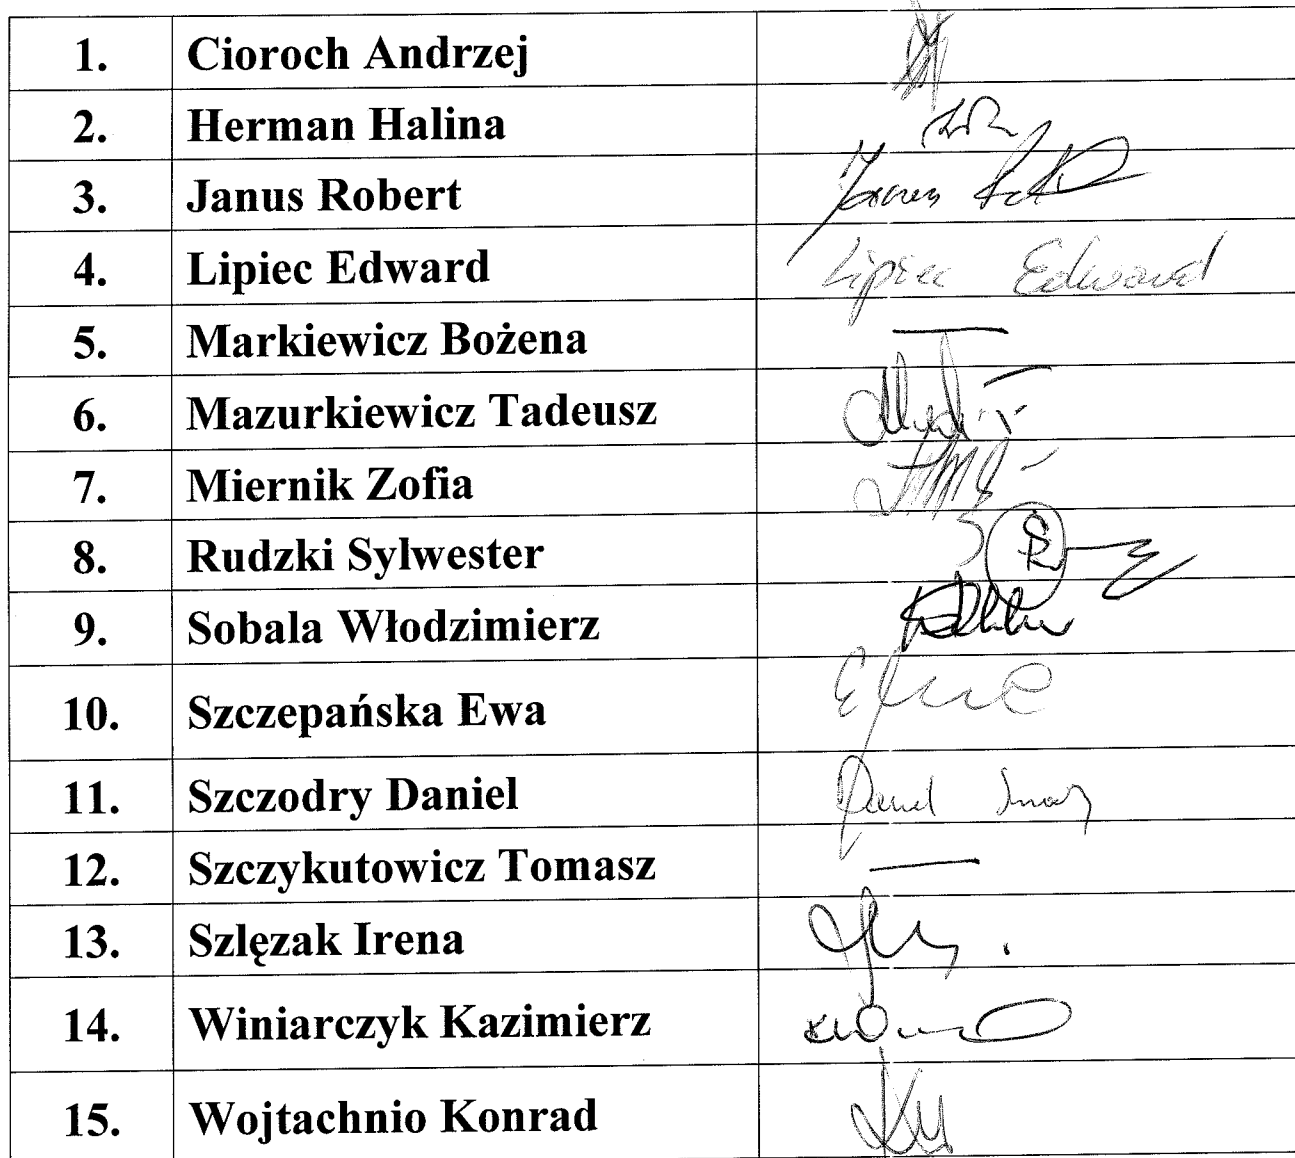 1. Cioroch Andrzej
2. Herman Halina
3. Janus Robert Janus
4. Lipiec Edward Lipiec Edward
5. Markiewicz Bożena —
6. Mazurkiewicz Tadeusz
7. Miernik Zofia
8. Rudzki Sylwester
9. Sobala Włodzimierz
10. Szczepańska Ewa
11. Szczodry Daniel
12. Szczykutowicz Tomasz —
13. Szlęzak Irena
14. Winiarczyk Kazimierz
15. Wojtachnio Konrad